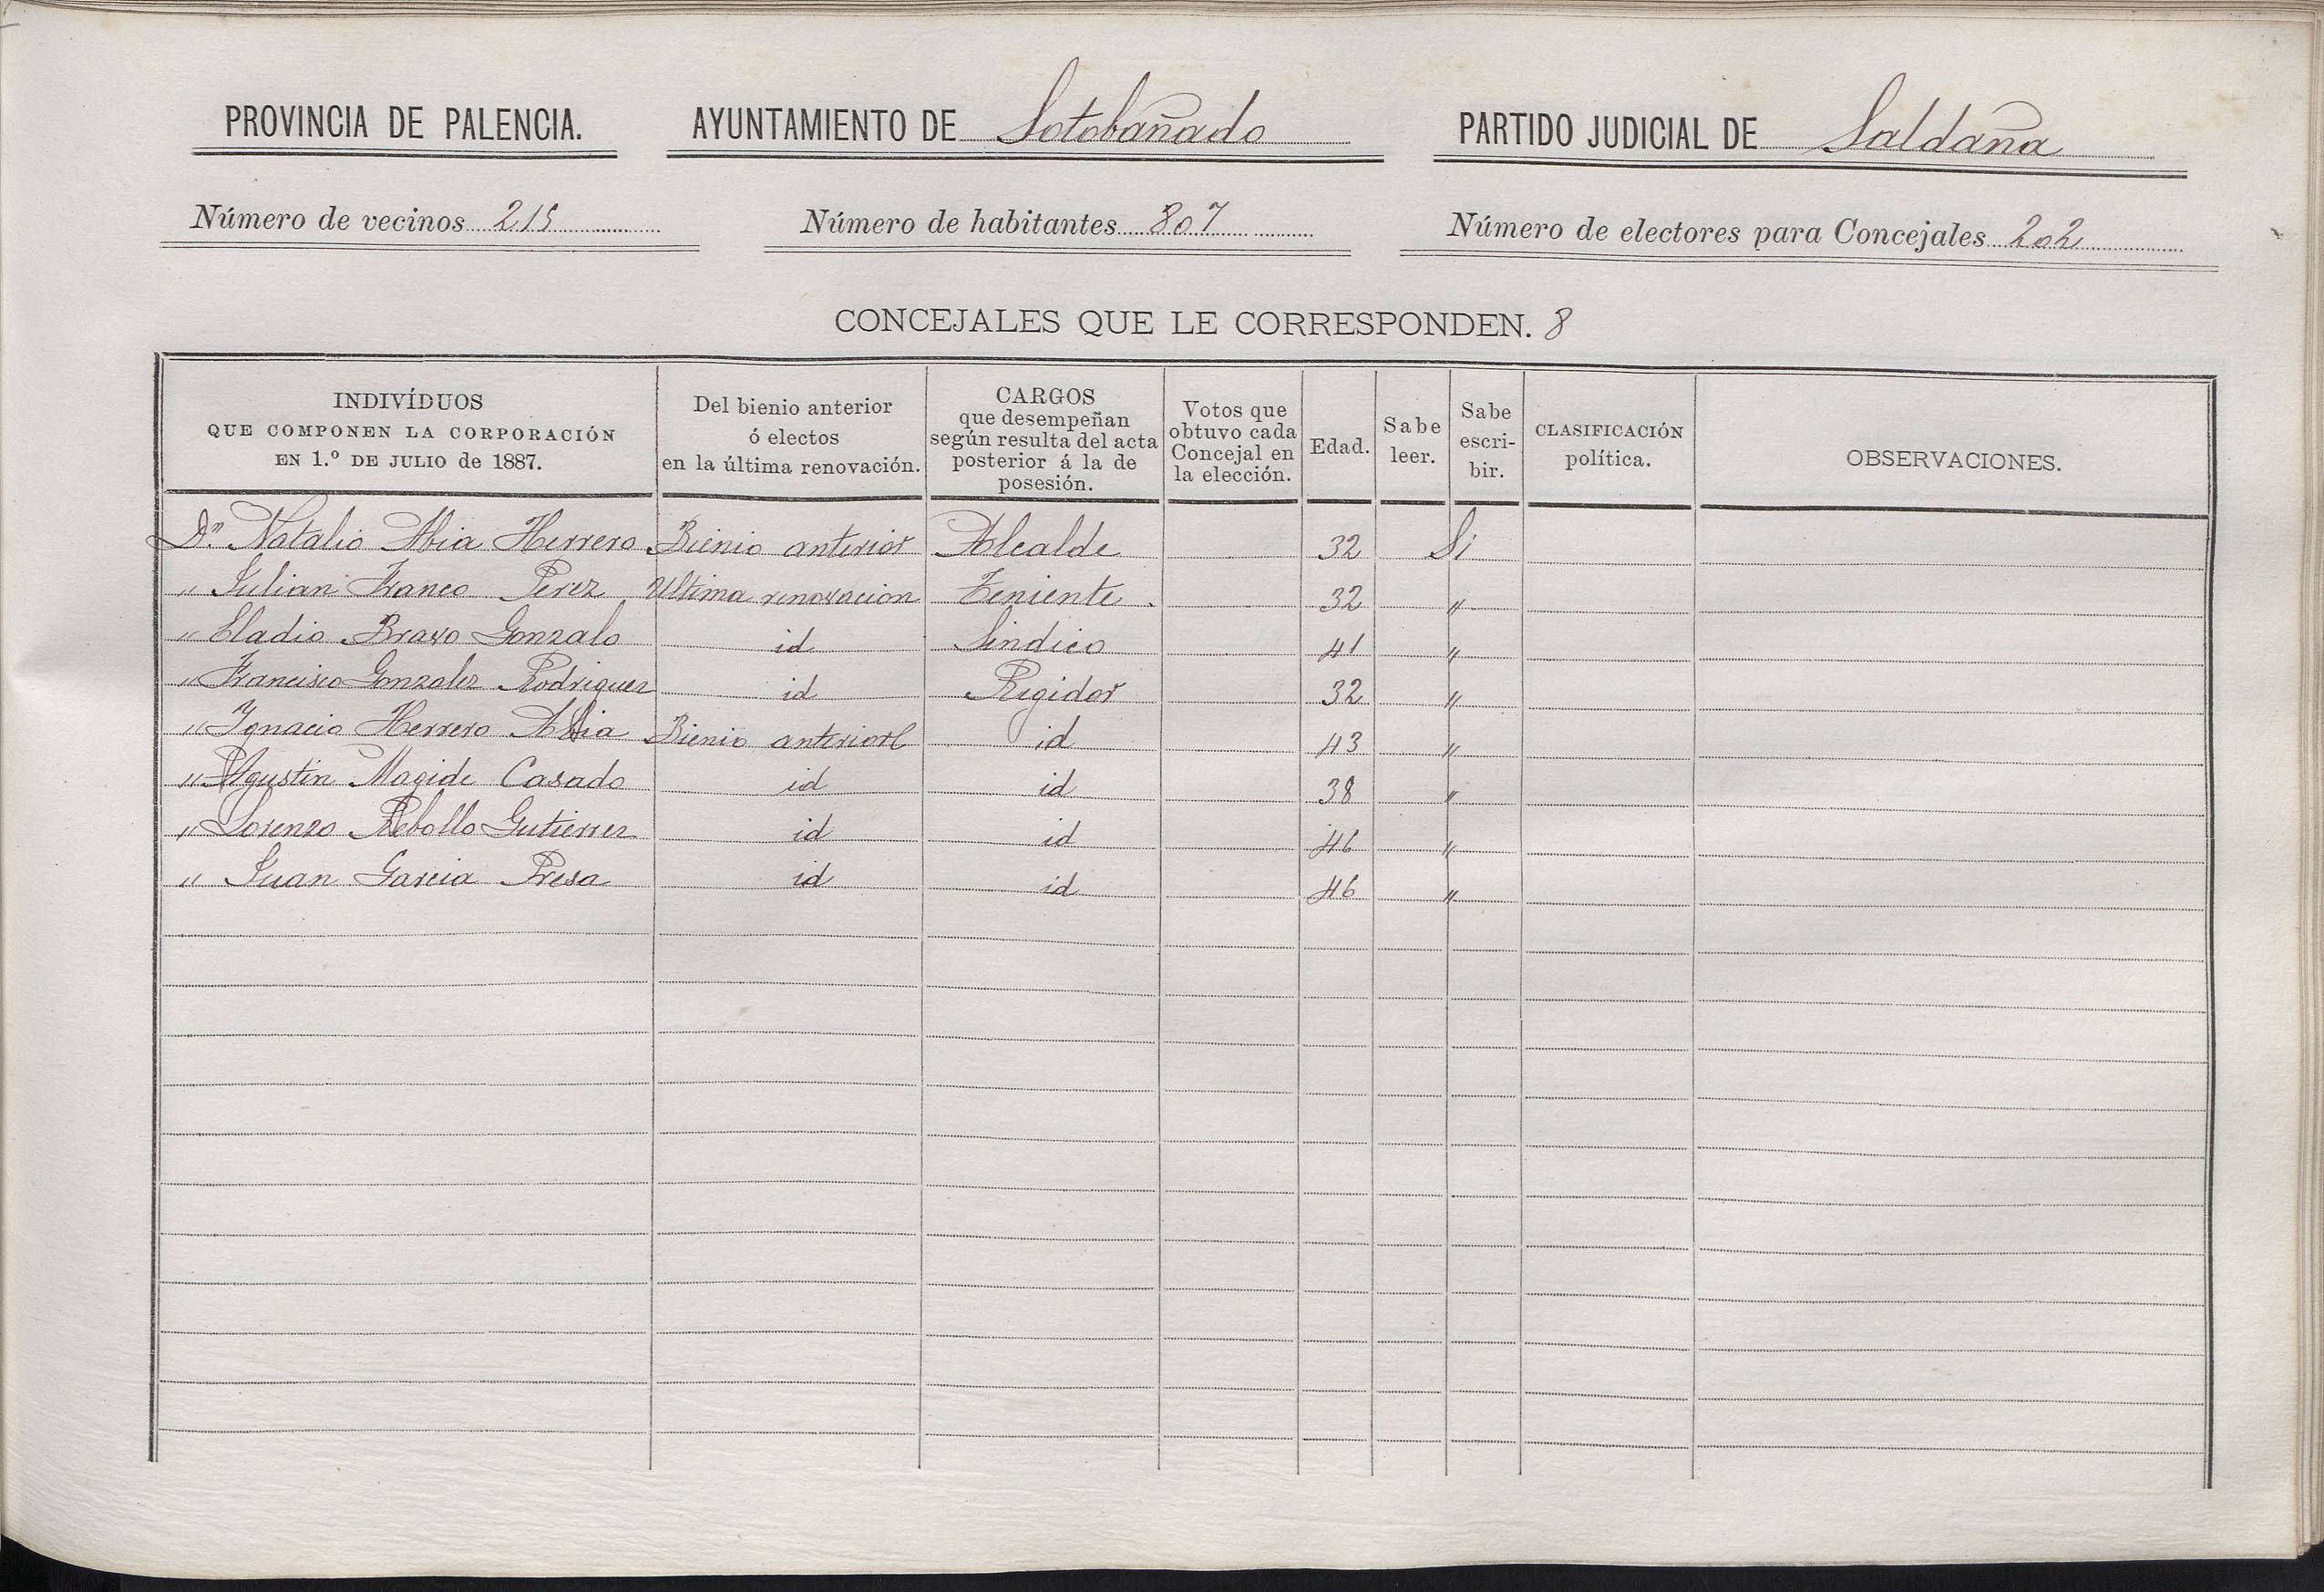 PROVINCIA DE PALENCIA. AYUNTAMIENTO DE Sotobañado PARTIDO JUDICIAL DE Saldaña
Número de vecinos 215 Número de habitantes 807 Número de electores para Concejales 202
CONCEJALES QUE LE CORRESPONDEN. 8
INDIVÍDUOS
QUE COMPONEN LA CORPORACIÓN
EN 1.º DE JULIO de 1887.
Del bienio anterior
ó electos
en la última renovación.
CARGOS
que desempeñan
según resulta del acta
posterior á la de
posesión.
Votos que
obtuvo cada
Concejal en
la elección.
Edad.
Sabe
leer.
Sabe
escri-
bir.
CLASIFICACIÓN
política.
OBSERVACIONES.
Dn. Natalio Abia Herrero Bienio anterior Alcalde 32 Si
" Julian Franco Perez Ultima renovacion Teniente. 32 "
" Eladio Bravo Gonzalo id Sindico 41 "
" Francisco Gonzalez Rodriguez id Regidor 32 "
" Ignacio Herrero Abia Bienio anterior id 43 "
" Agustin Magide Casado id id 38 "
" Lorenzo Rebollo Gutierrez id id 46 "
" Juan Garcia Presa id id 46 "